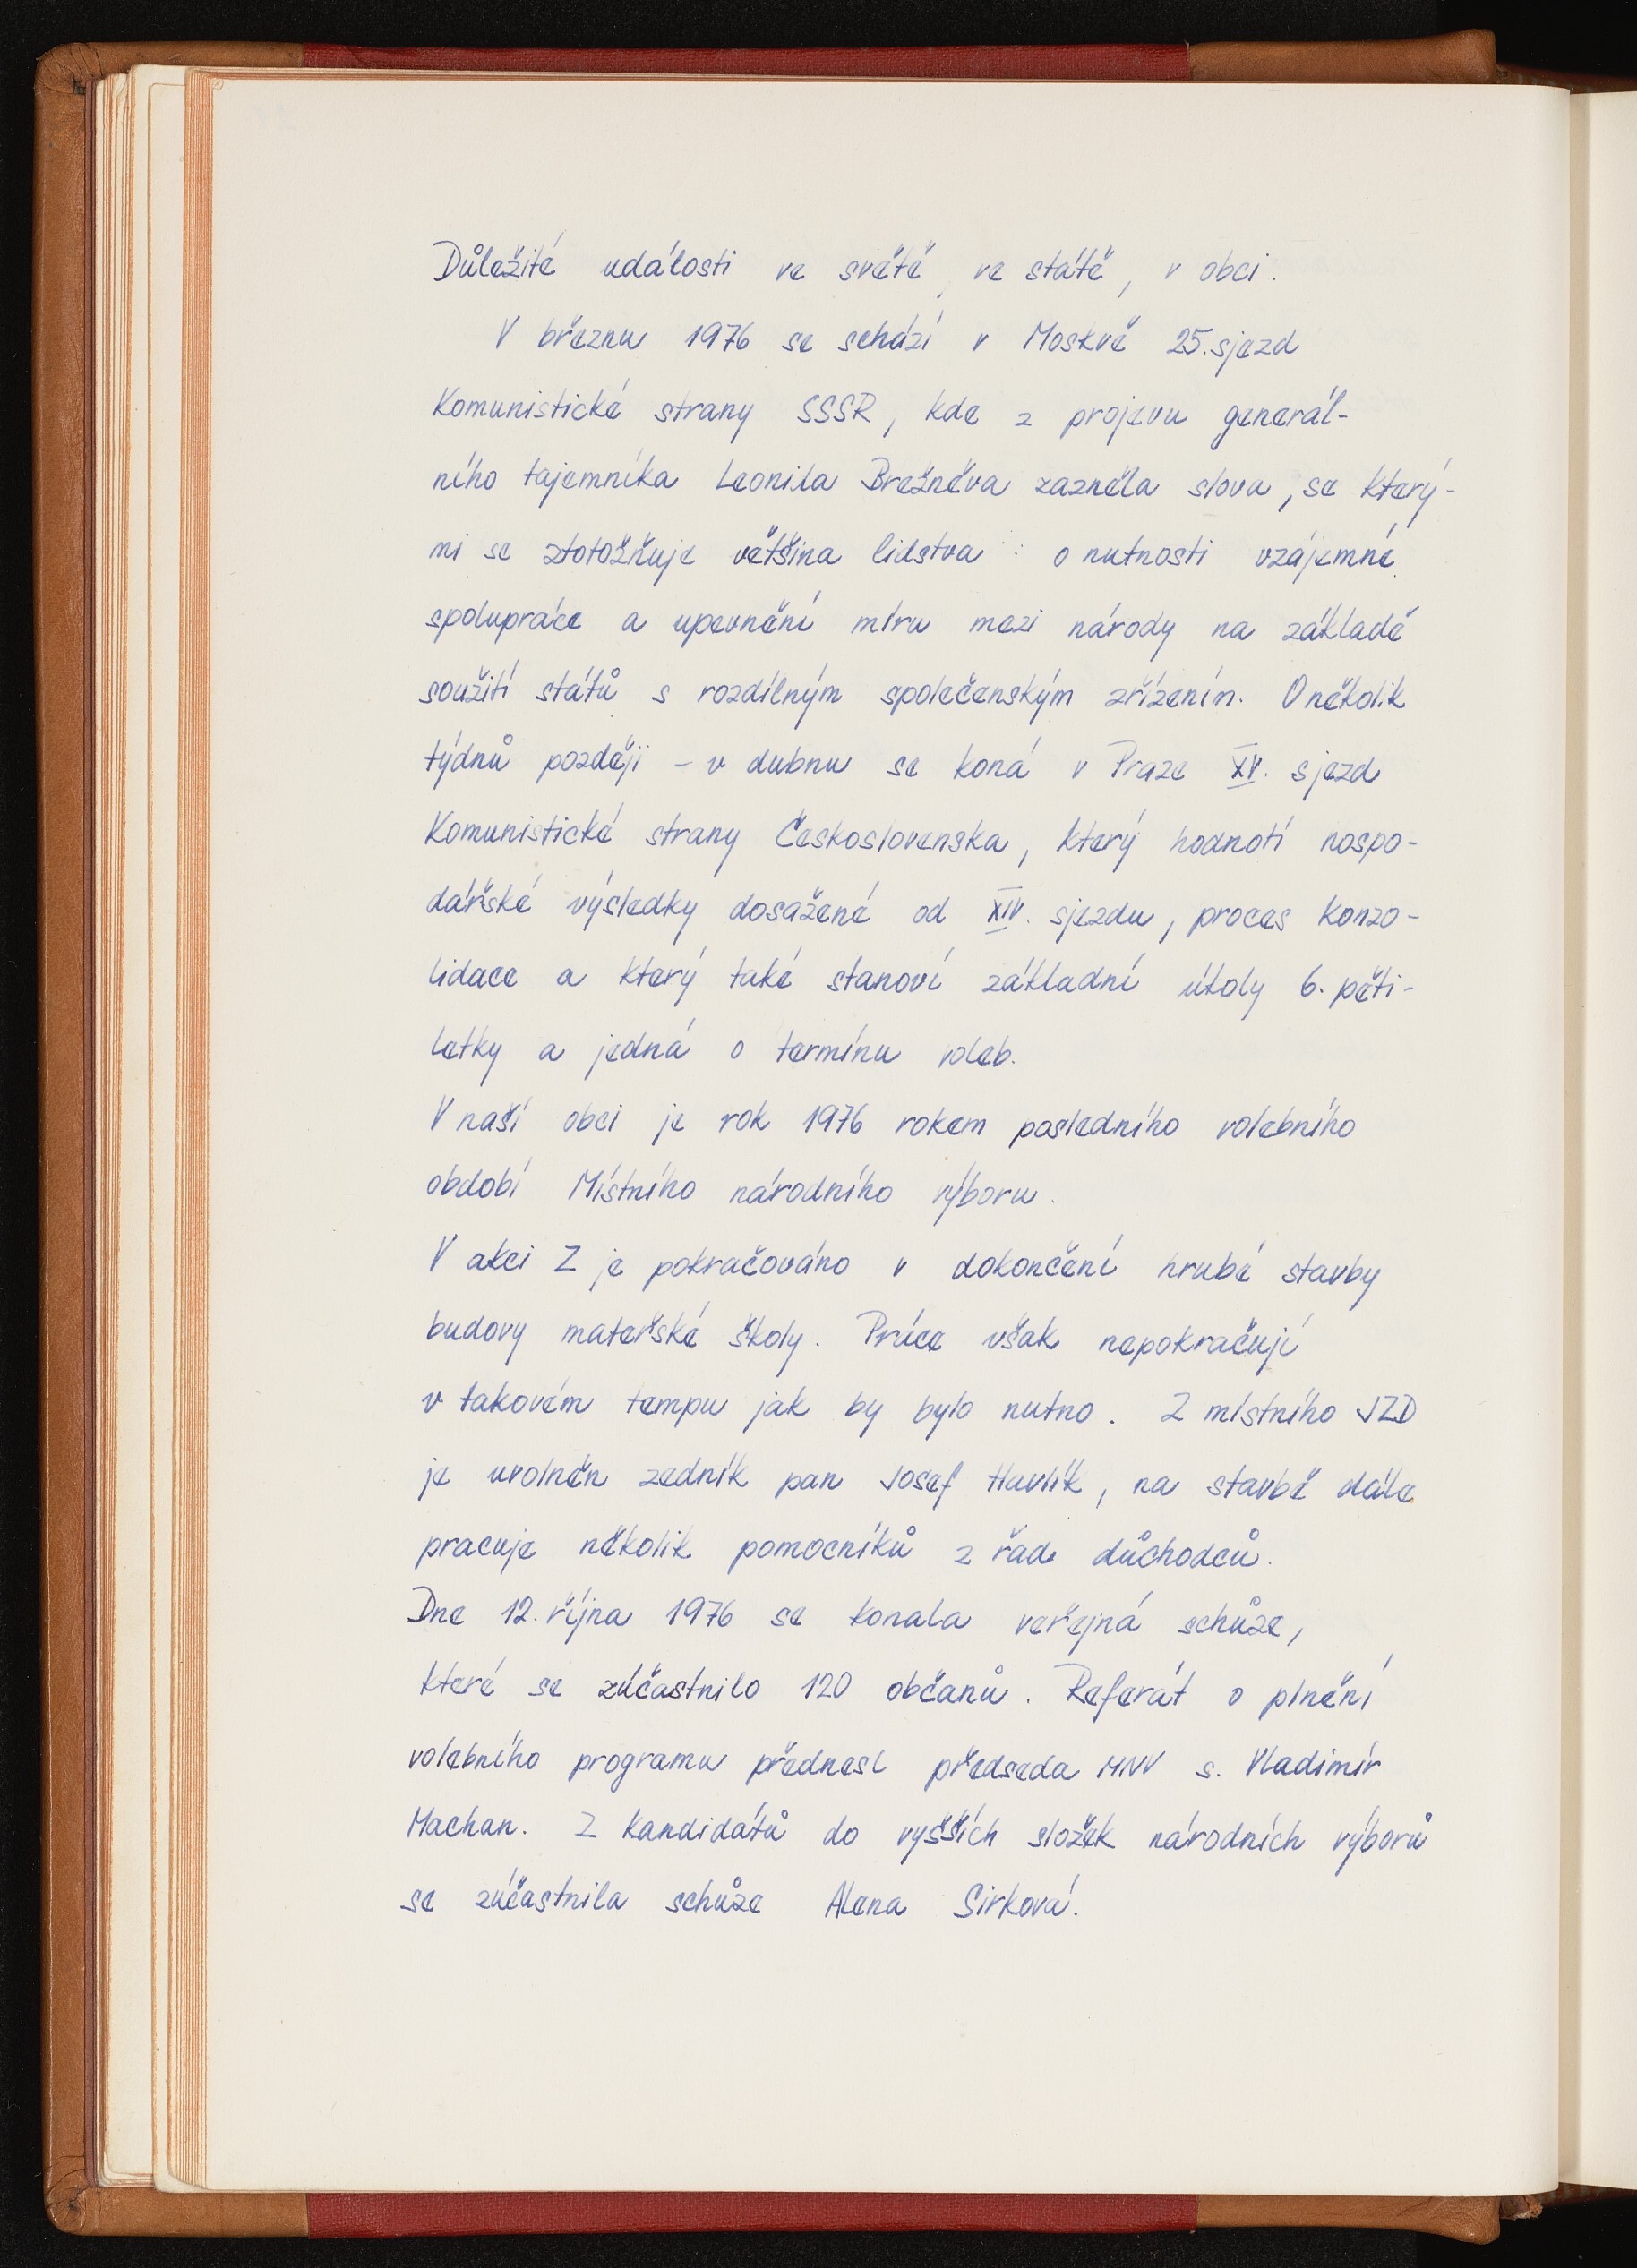 Důležité události ve světě, ve státě, v obci.
V březnu 1976 se schází v Moskvě 25. sjezd
Komunistické strany SSSR, kde z projevu generál-
ního tajemníka Leonila Brežněva zazněla slova, se který-
mi se ztotožňuje většina lidstva : o nutnosti vzájemné
spolupráce a upevnění míru mezi národy na základě
soužití států s rozdílným společenským zřízením. O několik
týdnů později - v dubnu se koná v Praze XV. sjezd
Komunistické strany Československa, který hodnotí hospo-
dářské výsledky dosažené od XIV. sjezdu, proces konzo-
lidace a který také stanoví základní úkoly 6. pěti-
letky a jedná o termínu voleb.
V naší obci je rok 1976 rokem posledního volebního
období Místního národního výboru.
V akci Z je pokračováno v dokončení hrubé stavby
budovy mateřské školy. Práce však nepokračují
v takovém tempu jak by bylo nutno. Z místního JZD
je uvolněn zedník pan Josef Havlík, na stavbě dále
pracuje několik pomocníků z řad důchodců.
Dne 12. října 1976 se konala veřejná schůze,
které se zúčastnilo 120 občanů. Referát o plnění
volebního programu přednesl předseda MNV s. Vladimír
Machan. Z kandidátů do vyšších složek národních výborů
se zúčastnila schůze Alena Sirková.